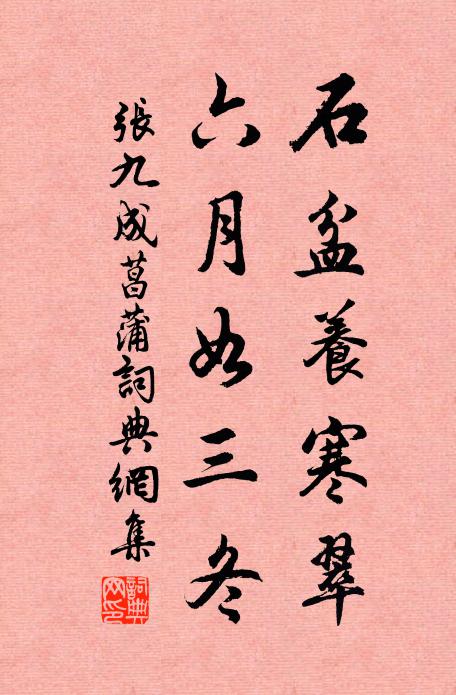 石盆養寒翠
六月如三冬
張九成菖蒲詞典網集
詞典网印